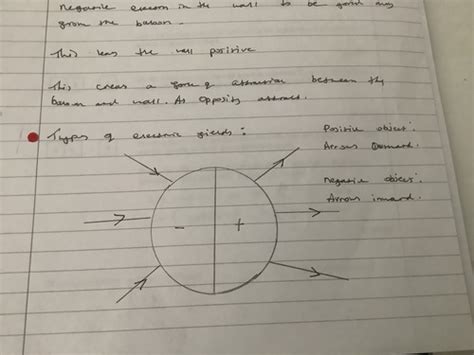 negative electron in the wall to be further away
from the balloon.
This leaves the wall positive
This creates a force of attraction between the
balloon and wall. As opposity attract.
Types of electric fields:
Positive object:
Arrows outward.
negative object:
Arrows inward.
- +